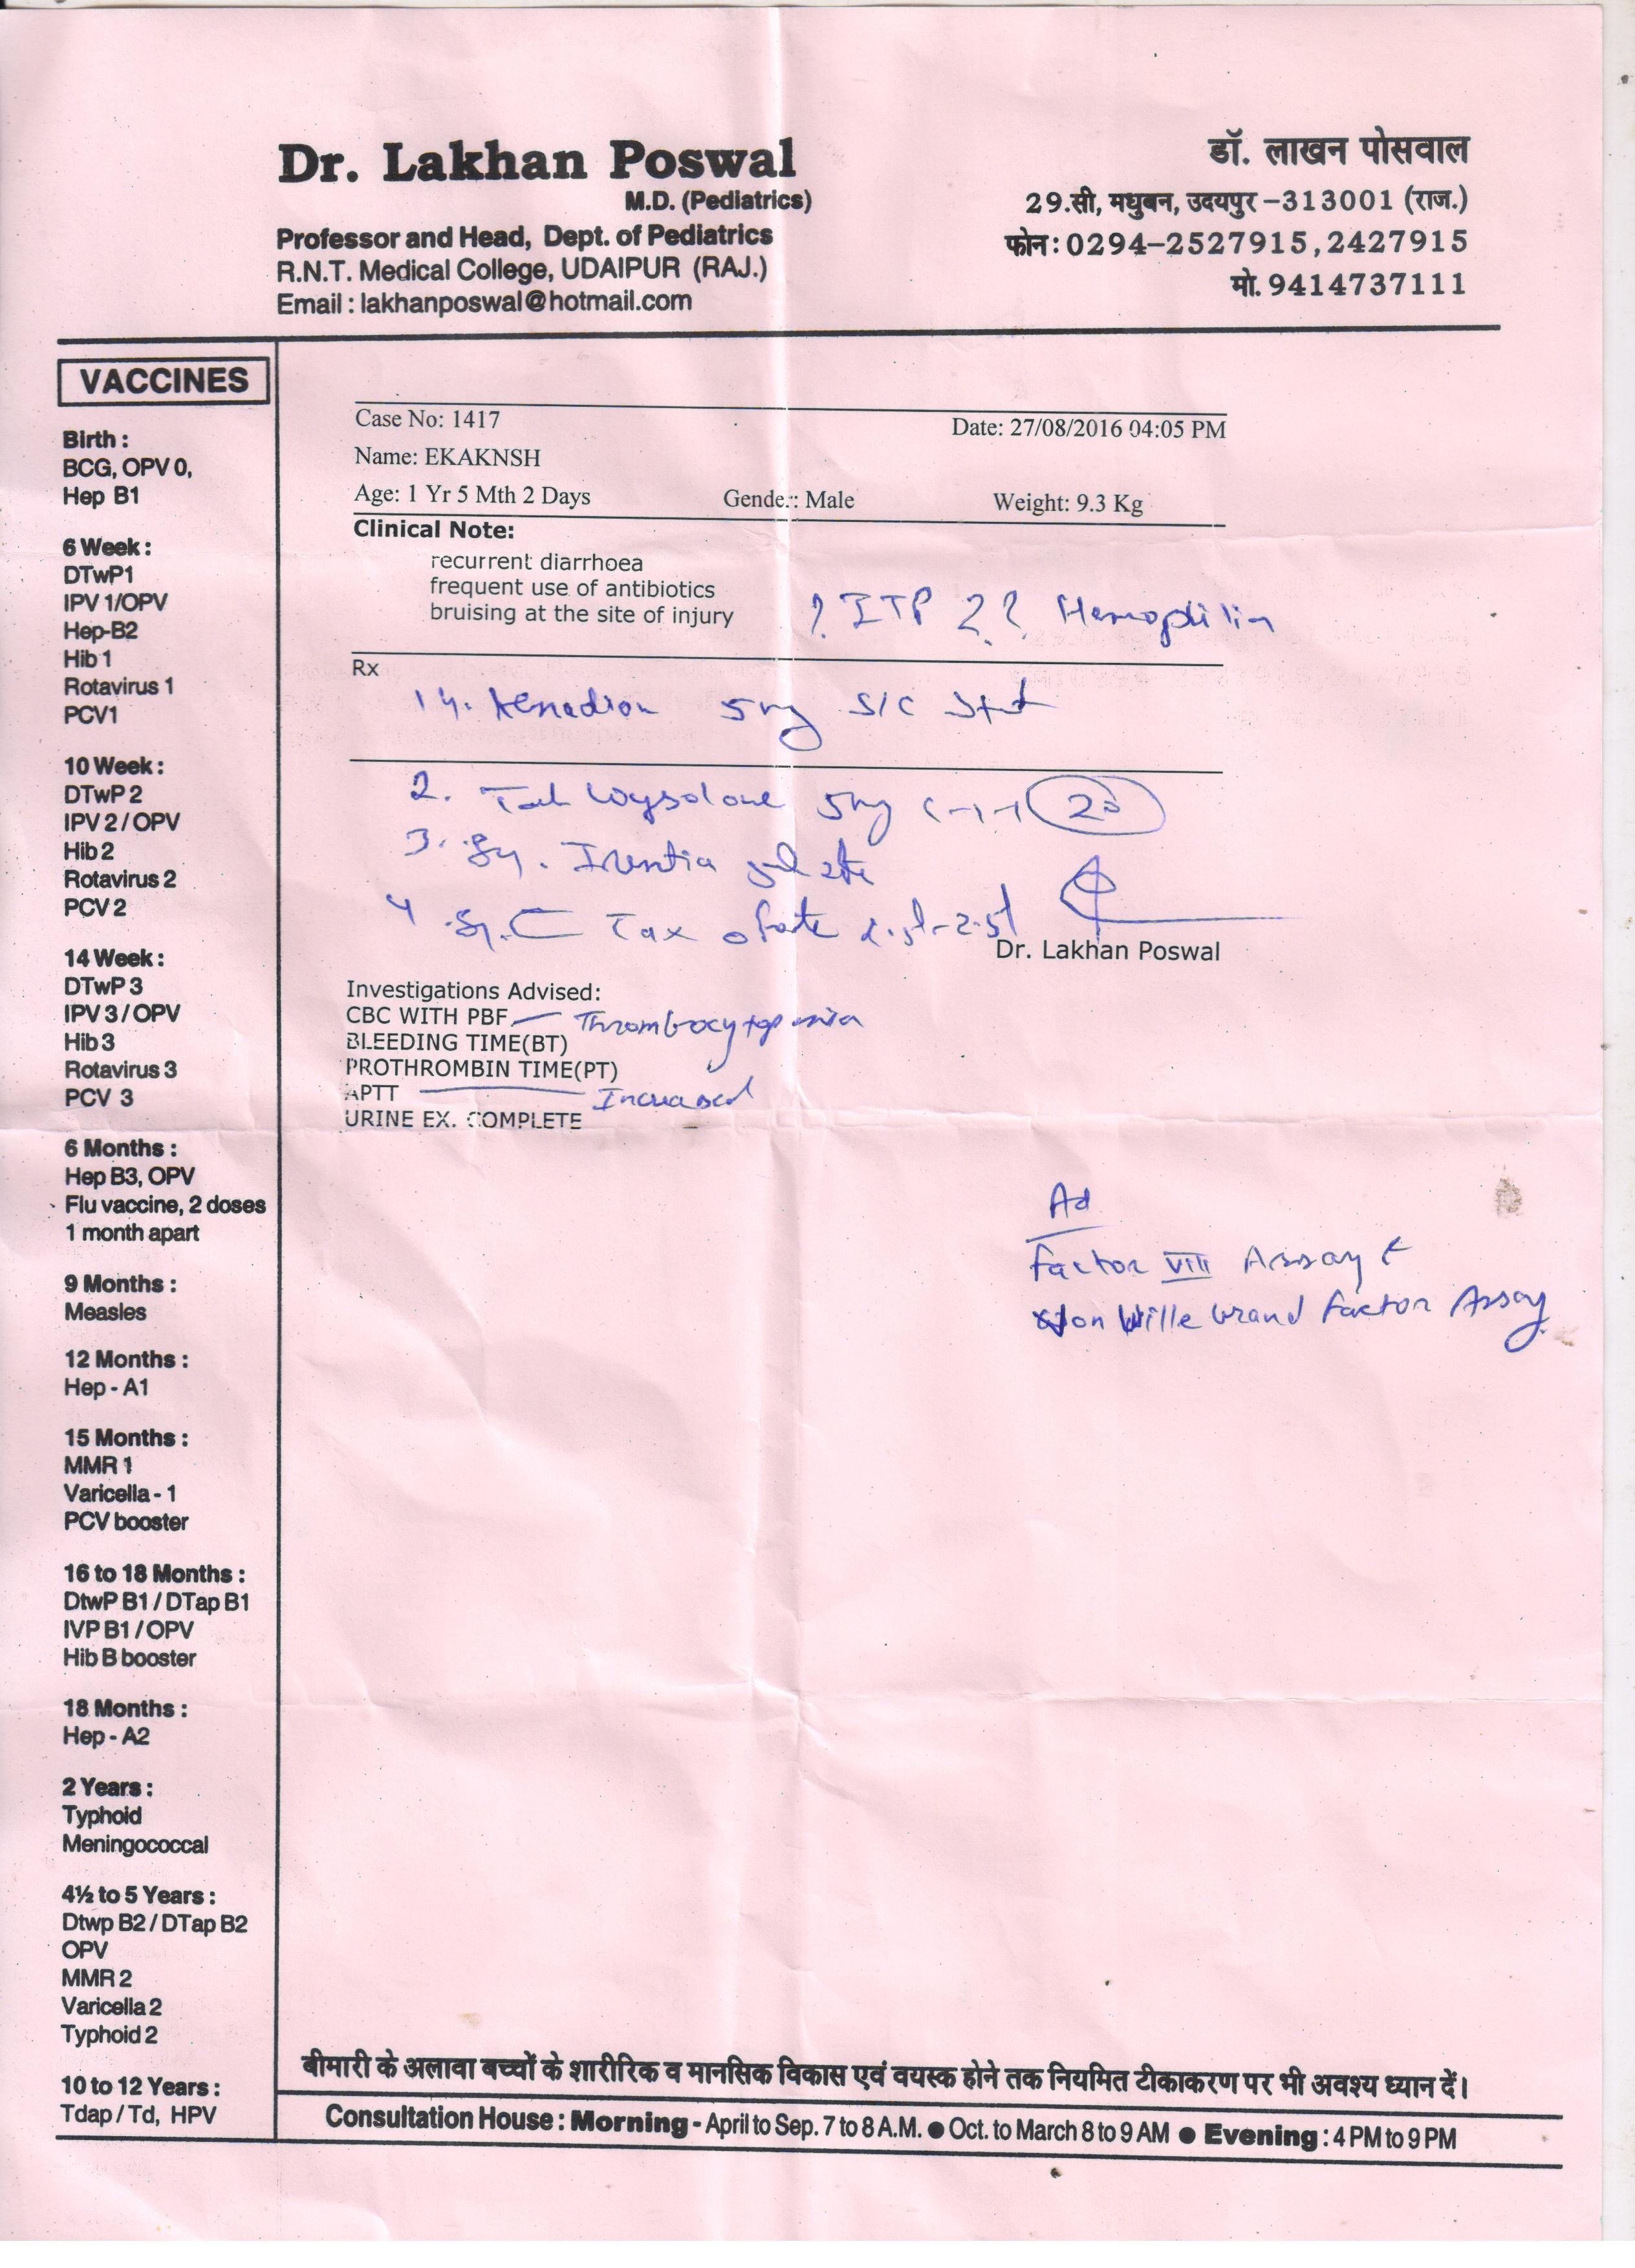 Dr. Lakhan Poswal
M.D. (Pediatrics)
Professor and Head, Dept. of Pediatrics
R.N.T. Medical College, UDAIPUR (RAJ.)
Email : lakhanposwal@hotmail.com
डॉ. लाखन पोसवाल
29.सी, मधुबन, उदयपुर-313001 (राज.)
फोन : 0294-2527915, 2427915
मो. 9414737111
VACCINES
Birth :
BCG, OPV 0,
Hep B1
6 Week :
DTwP1
IPV 1/OPV
Hep-B2
Hib 1
Rotavirus 1
PCV1
10 Week :
DTwP 2
IPV 2 / OPV
Hib 2
Rotavirus 2
PCV 2
14 Week :
DTwP 3
IPV 3 / OPV
Hib 3
Rotavirus 3
PCV 3
6 Months :
Hep B3, OPV
Flu vaccine, 2 doses
1 month apart
9 Months :
Measles
12 Months :
Hep - A1
15 Months :
MMR 1
Varicella - 1
PCV booster
16 to 18 Months :
DtwP B1 / DTap B1
IVP B1 / OPV
Hib B booster
18 Months :
Hep - A2
2 Years :
Typhoid
Meningococcal
4½ to 5 Years :
Dtwp B2 / DTap B2
OPV
MMR 2
Varicella 2
Typhoid 2
10 to 12 Years :
Tdap / Td, HPV
Case No: 1417 Date: 27/08/2016 04:05 PM
Name: EKAKNSH
Age: 1 Yr 5 Mth 2 Days Gender: Male Weight: 9.3 Kg
Clinical Note:
recurrent diarrhoea
frequent use of antibiotics
bruising at the site of injury ? ITP ? ? Hemophilia
Rx
5mg S/C Stat
2. Tab Wysolone 5mg 1-1-1 20
3. Sy.
4 Sy. C Tax o forte 2.5ml-2.5ml
Dr. Lakhan Poswal
Investigations Advised:
CBC WITH PBF — Thrombocytopenia
BLEEDING TIME(BT)
PROTHROMBIN TIME(PT)
APTT — Increased
URINE EX. COMPLETE
Ad
Factor VIII Assay &
Von Wille brand factor Assay
बीमारी के अलावा बच्चों के शारीरिक व मानसिक विकास एवं वयस्क होने तक नियमित टीकाकरण पर भी अवश्य ध्यान दें।
Consultation House : Morning - April to Sep. 7 to 8 A.M. ● Oct. to March 8 to 9 AM ● Evening : 4 PM to 9 PM